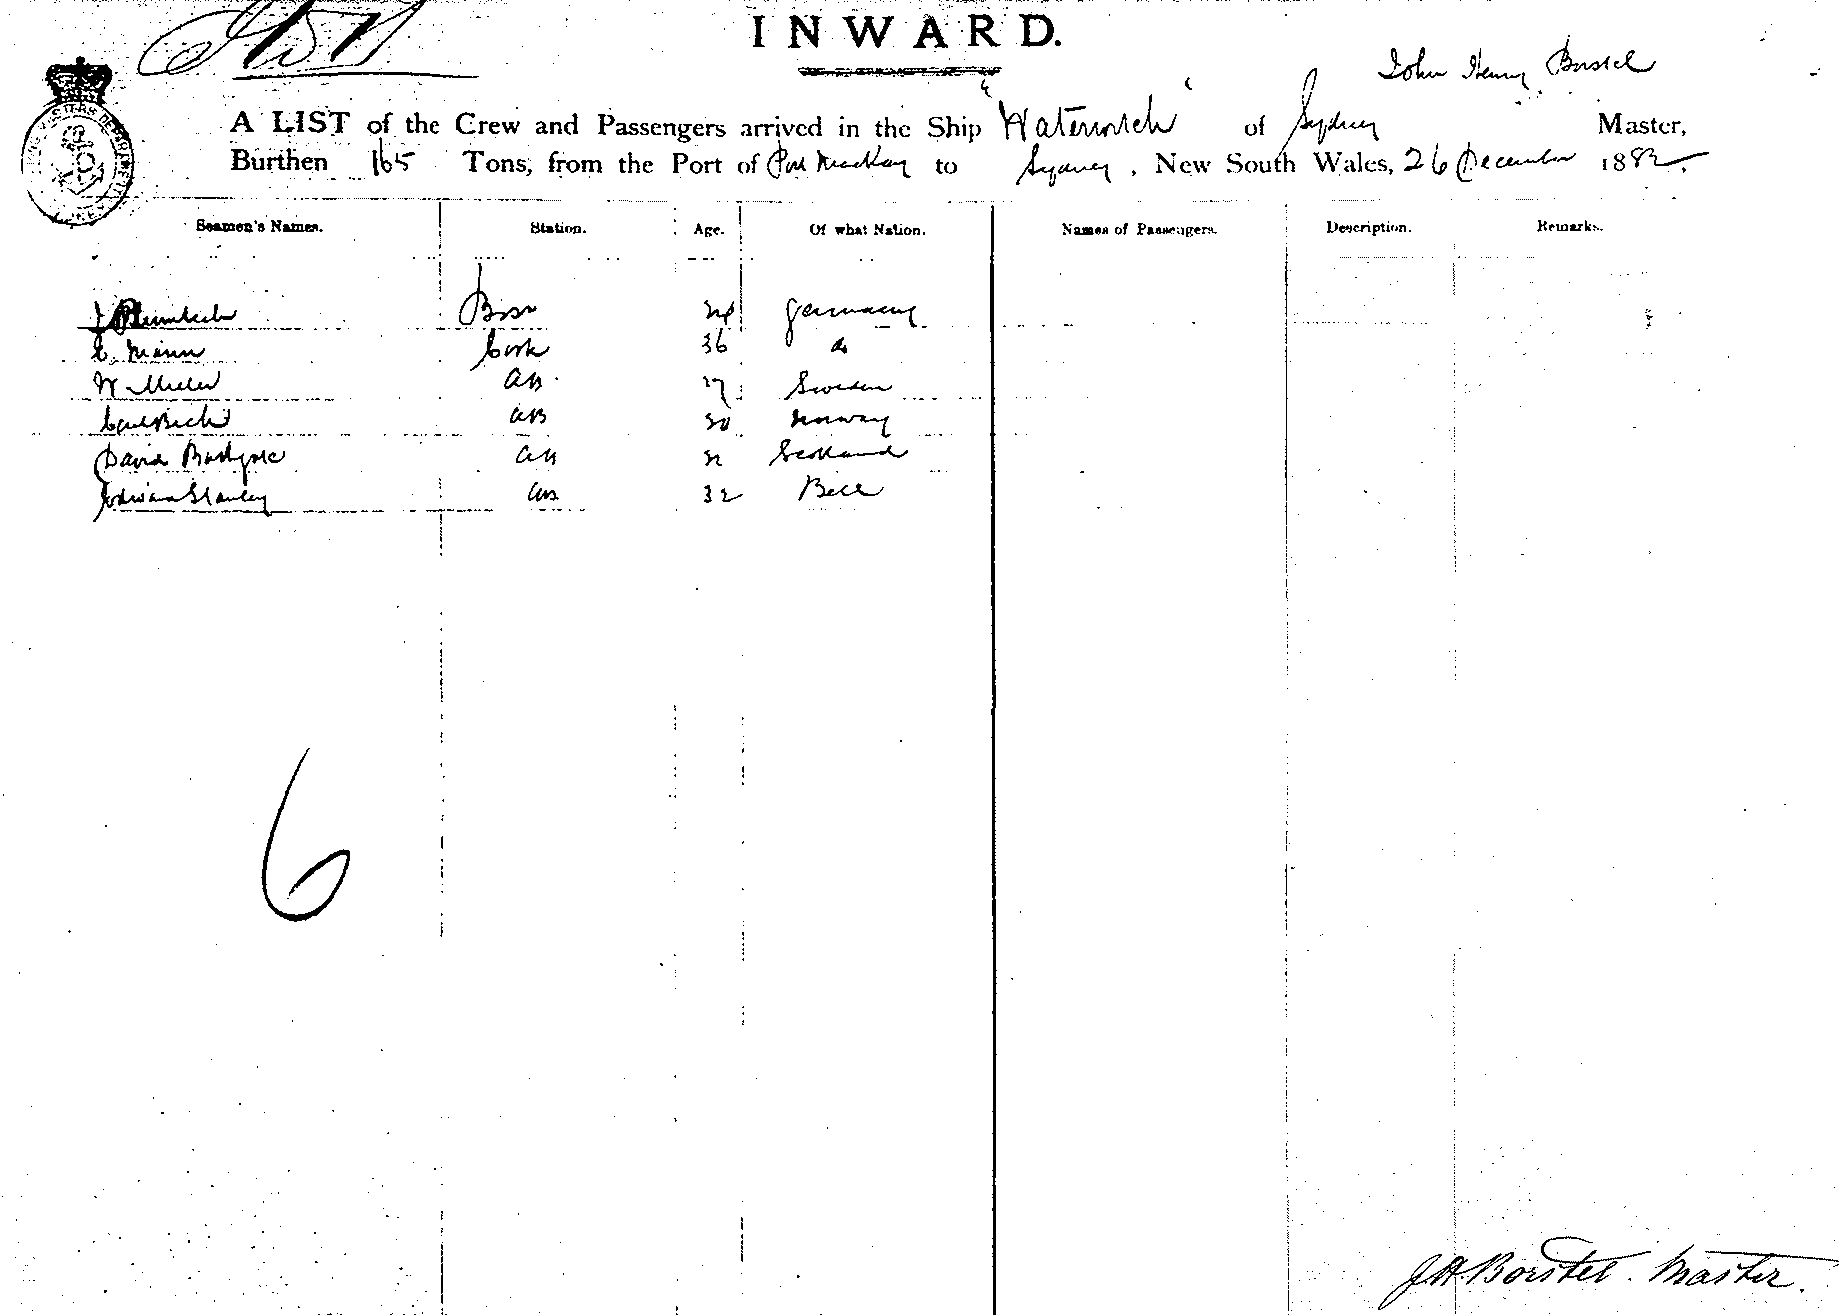 INWARD.
John Henry Borstel
A LIST of the Crew and Passengers arrived in the Ship "Waterwitch" of Sydney Master,
Burthen 165 Tons, from the Port of Port MacKay to Sydney, New South Wales, 26 December 1882.
Seamen's Names. Station. Age. Of what Nation. Names of Passengers. Description. Remarks.
J Germany
C. Mann Cook 36 do
W. Miller AB 27 Sweden
Carl Beck AB 30 Norway
David AB Scotland
Edward Stanley AB 32
6
J H Borstel. Master.